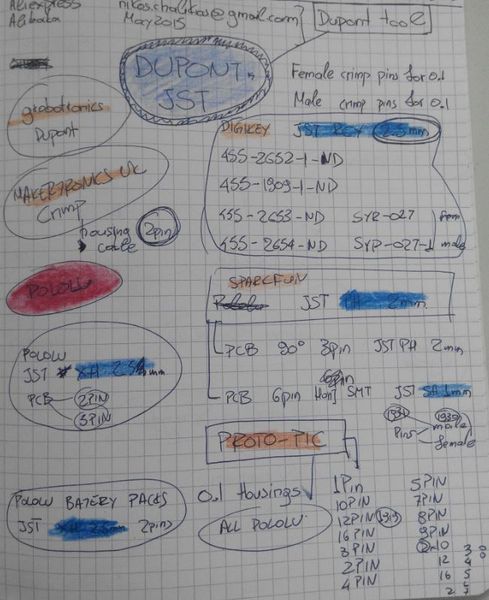 Aliexpress
Alibaba
nikos.chalikias@gmail.com
May 2015
Dupont tool
DUPONT
JST
Female crimp pins for 0.1
Male crimp pins for 0.1
grobotronics
Dupont
MAKERTRONICS UK
Crimp
housing
cable
2pin
DIGIKEY JST RCY 2.5mm
455-2652-1-ND
455-1909-1-ND
455-2653-ND SYR-027 fem
455-2654-ND SYP-027-1 male
POLOLU
SPARCFUN
Pololu JST PH 2mm
PCB 90° 3pin JST PH 2mm
PCB 6pin SMT JST SH 1mm
POLOLU
JST XH 2.54mm
PCB 2PIN
3PIN
PROTO-PIC
Pins male
female
0.1 Housings
ALL POLOLU
POLOLU BATERY PACKS
JST 2pins
1Pin
10PIN
12PIN
16PIN
3PIN
2PIN
4PIN
5PIN
7PIN
8PIN
9PIN
2x10
12 4
16 5